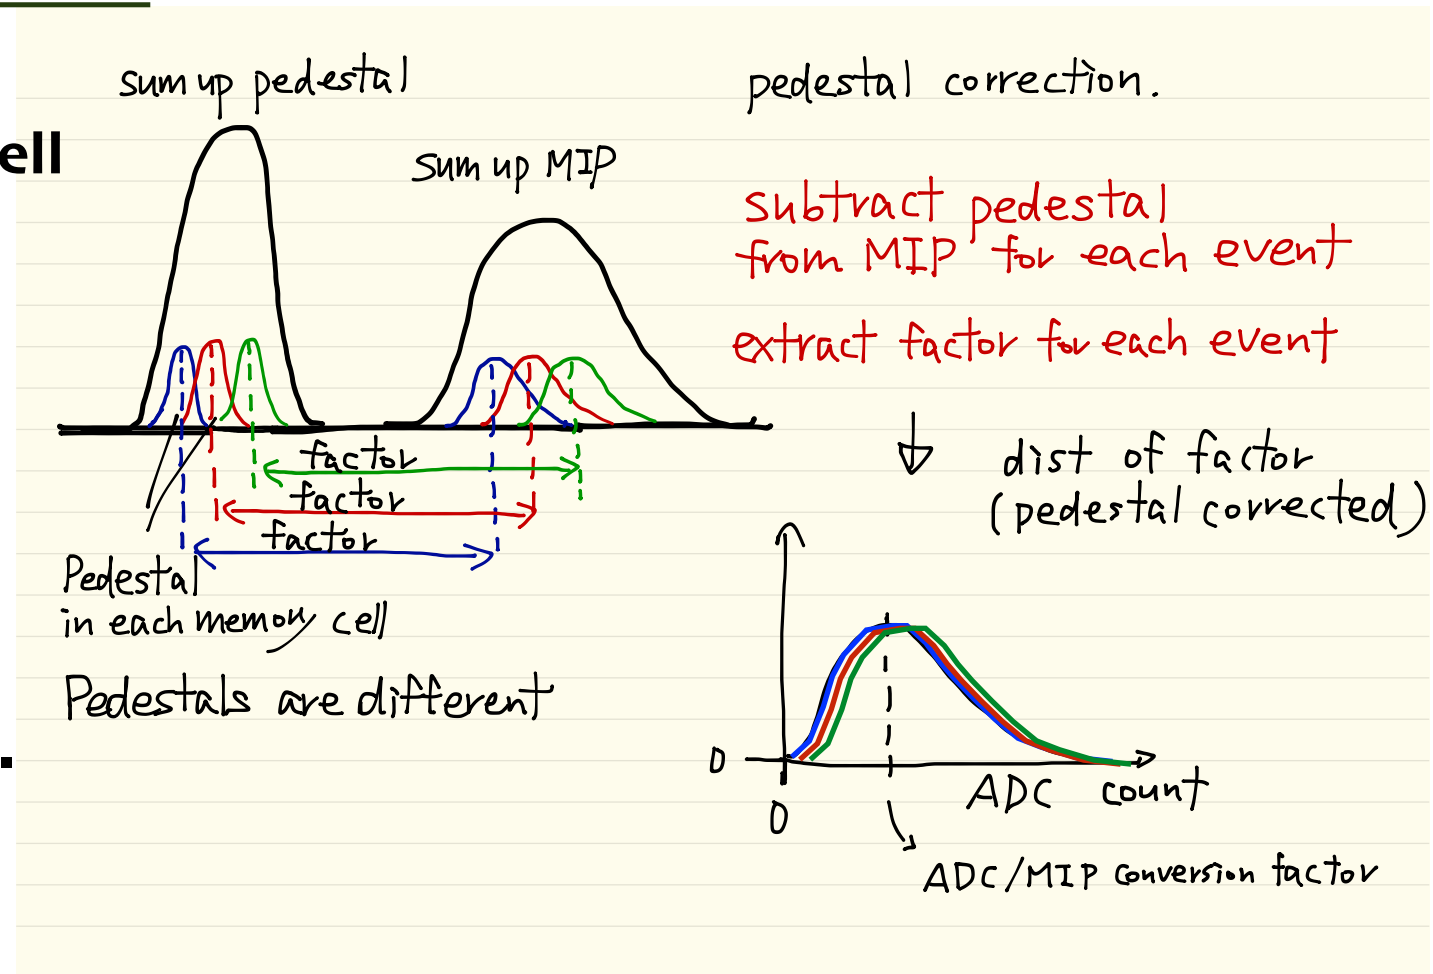 ell
sum up pedestal
sum up MIP
factor
factor
factor
Pedestal
in each memory cell
Pedestals are different
.
pedestal correction.
subtract pedestal
from MIP for each event
extract factor for each event
dist of factor
(pedestal corrected)
0
0
ADC count
ADC/MIP conversion factor